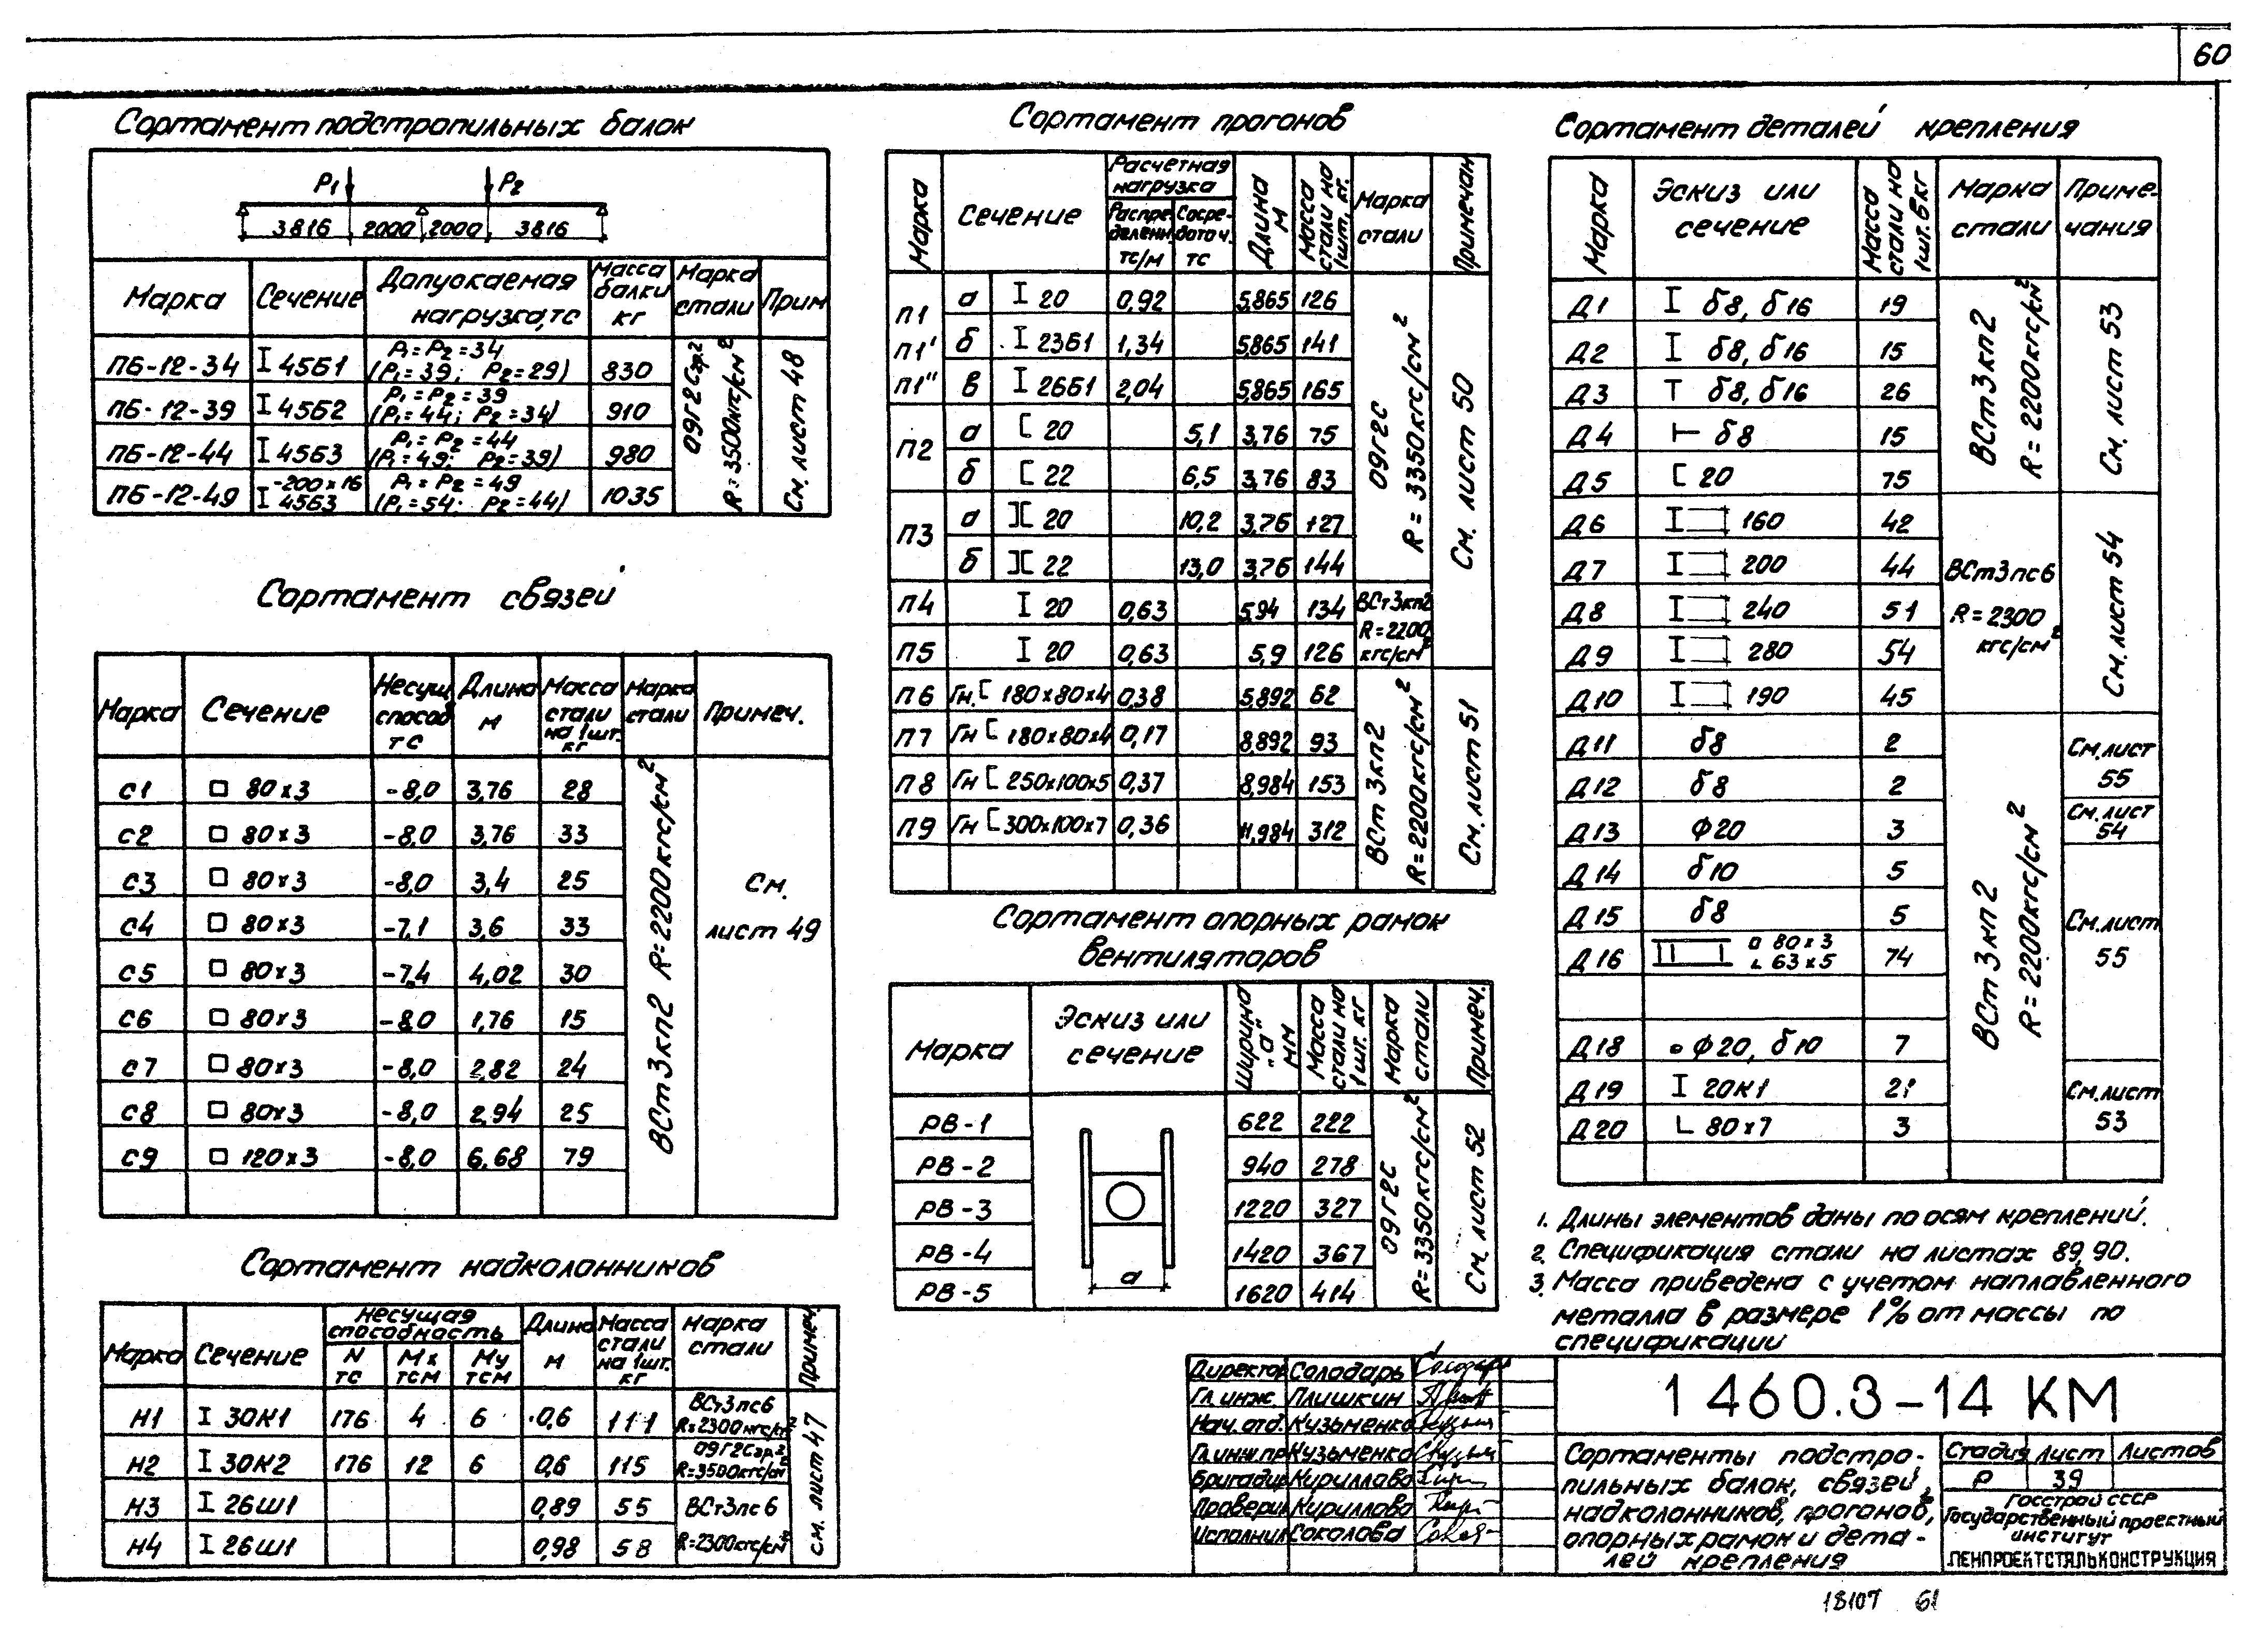 60
Сортамент подстропильных балок
P₁ P₂
3816 2000 2000 3816
Марка Сечение Допускаемая нагрузка, тс Масса балки кг Марка стали Прим
ПБ-12-34 I 45Б1 P₁=P₂=34 (P₁=39; P₂=29) 830
ПБ-12-39 I 45Б2 P₁=P₂=39 (P₁=44; P₂=34) 910
ПБ-12-44 I 45Б3 P₁=P₂=44 (P₁=49; P₂=39) 980
ПБ-12-49 -200x16 I 45Б3 P₁=P₂=49 (P₁=54; P₂=44) 1035
09Г2С гр.2 R=3500кгс/см²
См. лист 48
Сортамент связей
Марка Сечение Несущ. способ тс Длина м Масса стали на 1шт. кг Марка стали Примеч.
С1 □ 80x3 -8,0 3,76 28
С2 □ 80x3 -8,0 3,76 33
С3 □ 80x3 -8,0 3,4 25
С4 □ 80x3 -7,1 3,6 33
С5 □ 80x3 -7,4 4,02 30
С6 □ 80x3 -8,0 1,76 15
С7 □ 80x3 -8,0 2,82 24
С8 □ 80x3 -8,0 2,94 25
С9 □ 120x3 -8,0 6,68 79
ВСт3кп2 R=2200кгс/см²
См.
лист 49
Сортамент надколонников
Марка Сечение Несущая способность N тс Mх тсм Mу тсм Длина м Масса стали на 1шт. кг Марка стали Примеч.
Н1 I 30К1 176 4 6 0,6 111 ВСт3пс6 R=2300кгс/см²
Н2 I 30К2 176 12 6 0,6 115 09Г2С гр.2 R=3500кгс/см²
Н3 I 26Ш1 0,89 55 ВСт3пс6
Н4 I 26Ш1 0,98 58 R=2300кгс/см²
см. лист 47
Сортамент прогонов
Марка Сечение Расчетная нагрузка Распределенн. тс/м Сосредоточ. тс Длина м Масса стали на 1шт, кг. Марка стали Примечан.
П1 а I 20 0,92 5,865 126
П1' б I 23Б1 1,34 5,865 141
П1" в I 26Б1 2,04 5,865 165
П2 а [ 20 5,1 3,76 75
б [ 22 6,5 3,76 83
П3 а ][ 20 10,2 3,76 127
б ][ 22 13,0 3,76 144
09Г2С R=3350кгс/см²
П4 I 20 0,63 5,94 134 ВСт3кп2
П5 I 20 0,63 5,9 126 R=2200 кгс/см²
См. лист 50
П6 Гн. [ 180x80x4 0,38 5,892 62
П7 Гн [ 180x80x4 0,17 8,892 93
П8 Гн [ 250x100x5 0,37 8,984 153
П9 Гн [ 300x100x7 0,36 11,984 312
ВСт3кп2 R=2200кгс/см²
См. лист 51
Сортамент опорных рамок
вентиляторов
Марка Эскиз или сечение Ширина „а" мм Масса стали на 1шт. кг Марка стали Примеч.
РВ-1 622 222
РВ-2 940 278
РВ-3 1220 327
РВ-4 1420 367
РВ-5 1620 414
а
09Г2С R=3350кгс/см²
См. лист 52
Сортамент деталей крепления
Марка Эскиз или сечение Масса стали на 1шт. в кг Марка стали Примечания
Д1 I δ8, δ16 19
Д2 I δ8, δ16 15
Д3 T δ8, δ16 26
Д4 ⊢ δ8 15
Д5 [ 20 75
ВСт3кп2 R=2200кгс/см²
См. лист 53
Д6 I 160 42
Д7 I 200 44
Д8 I 240 51
Д9 I 280 54
Д10 I 190 45
ВСт3пс6
R=2300
кгс/см²
См. лист 54
Д11 δ8 2 См. лист
Д12 δ8 2 55
Д13 ф20 3 См. лист 54
Д14 δ10 5
Д15 δ8 5 См. лист
Д16 □ 80x3 ∟ 63x5 74 55
Д18 ф20, δ10 7
Д19 I 20К1 21 См. лист
Д20 ∟ 80x7 3 53
ВСт3кп2 R=2200кгс/см²
1. Длины элементов даны по осям креплений.
2. Спецификация стали на листах 89, 90.
3. Масса приведена с учетом наплавленного
металла в размере 1% от массы по
спецификации
Директор Солодарь
Гл. инж. Плишкин
Нач. отд. Кузьменко
Гл. инж. пр Кузьменко
Бригадир Кириллова
Проверил Кириллова
Исполнил Соколова
1 460.3-14 КМ
Сортаменты подстро-
пильных балок, связей,
надколонников, прогонов,
опорных рамок и дета-
лей крепления
Стадия Лист Листов
Р 39
Госстрой СССР
Государственный проектный
институт
ЛЕНПРОЕКТСТАЛЬКОНСТРУКЦИЯ
18107 61